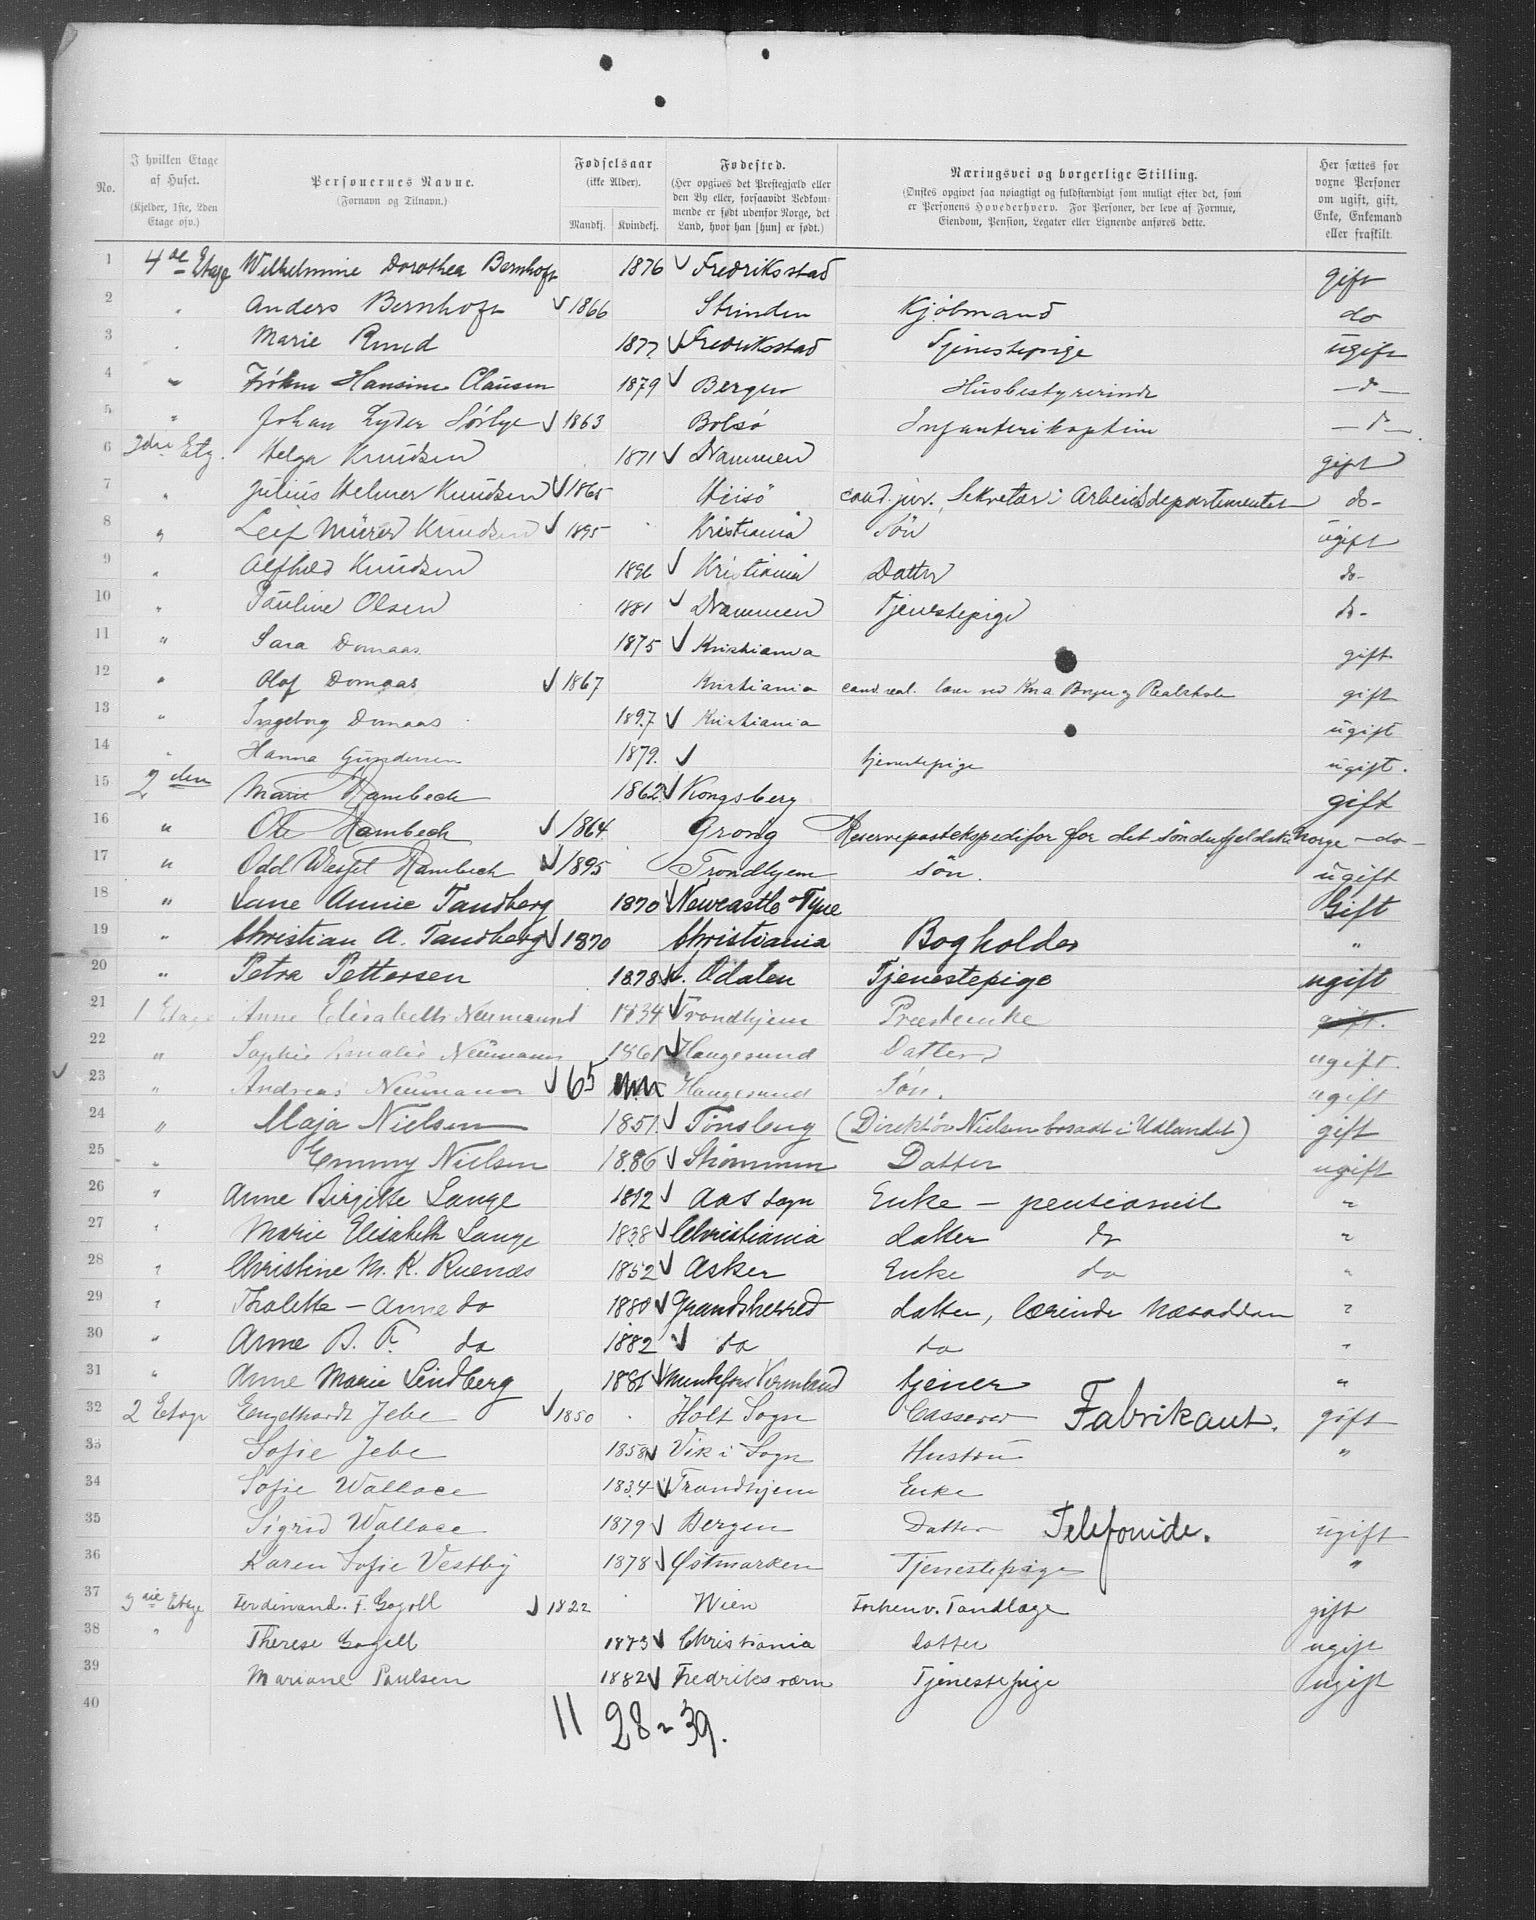 No. | I hvilken Etage af Huset. (Kjelder, 1ste, 2den Etage osv.) | Personernes Navne. (Fornavn og Tilnavn.) | Fødselsaar (ikke Alder). Mandkj. Kvindekj. | Fødested. (Her opgives det Prestegjæld eller den By eller, forsaavidt Vedkommende er født udenfor Norge, det Land, hvor han [hun] er født.) | Næringsvei og borgerlige Stilling. (Ønskes opgivet saa nøiagtigt og fuldstændigt som muligt efter det, som er Personens Hovederhverv. For Personer, der leve af Formue, Eiendom, Pension, Legater eller Lignende anføres dette. | Her sættes for voxne Personer om ugift, gift, Enke, Enkemand eller fraskilt.
1 4de Etage Wilhelmine Dorothea Bernhoft 1876 Fredriksstad gift
2 " Anders Bernhoft 1866 Strinden Kjøbmand do
3 " Marie Ruud 1877 Fredriksstad Tjenestepige ugift
4 " Frøken Hansine Clausen 1879 Bergen Husbestyrerinde - d -
5 " Johan Lyder Sørbye 1863 Bolsø Infanterikaptein - d -
6 3die Etg. Helga Knudsen 1871 Drammen gift
7 " Julius Helmer Knudsen 1865 Hisö cand. jur. Sekretær i Arbeidsdepartementet do-
8 " Leif Mürer Knudsen 1895 Kristiania Sön ugift
9 " Alfhild Knudsen 1896 Kristiania Datter do-
10 " Pauline Olsen 1881 Drammen Tjenestepige do-
11 " Sara Domaas 1875 Kristiania gift
12 " Olaf Domaas 1867 Kristiania cand. real. lærer ved Kra Borger og Realskole gift
13 " Ingeborg Domaas 1897 Kristiania ugift
14 " Hanna Gundersen 1879. tjenestepige ugift.
15 2den Marie Rambech 1862 Kongsberg gift
16 " Ole Rambech 1864 Grong Reservepostekspeditør for det söndenfjeldske Norge - do -
17 " Odd Wessel Rambech 1895 Trondhjem sön. ugift
18 " Jane Annie Tandberg 1870 Newcastle o Tyne Gift
19 " Christian A. Tandberg 1870 Christiania Bogholder "
20 " Petra Pettersen 1878 N. Odalen Tjenestepige ugift
21 1 Etage Anne Elisabeth Neumann 1834 Trondhjem Præsteenke gift.
22 " Sophie Amalie Neumann 1861 Haugesund Datter ugift.
23 " Andreas Neumann 65 Haugesund Søn. ugift
24 " Maja Nielsen 1851. Tönsberg (Direktör Nielsen bosadt i Udlandet) gift
25 " Emmy Nielsen 1886 Strömmen Datter ugift
26 " Anne Birgitte Lange 1812 Aas sogn Enke - pensionist "
27 " Marie Elisabeth Lange 1838 Christiania datter do "
28 " Christine M. K. Ruenæs 1852 Asker Enke do "
29 " Thalette - Anne do 1880 Grandsherred datter, lærerinde Næsodden "
30 " Anne B. F. do 1882 do do "
31 " Anne Marie Lindberg 1881 Munkfors Vermland tjener "
32 2 Etage Engelhardt Jebe 1850 Holt Sogn Casserer Fabrikant. gift
33 Sofie Jebe 1858 Vik i Sogn Hustru "
34 Sofie Wallace 1834 Trondhjem Enke
35 Sigrid Wallace 1879 Bergen Datter Telefonide. ugift
36 Karen Sofie Vestby 1878 Østmarken Tjenestepige "
37 3die Etage Ferdinand. F. Gogoll 1822 Wien Forhenv. Tandlæge gift
38 " Therese Gogoll 1873 Christiania datter ugift
39 Mariane Paulsen 1882 Fredriksværn Tjenestepige ugift
40
11 28 = 39.